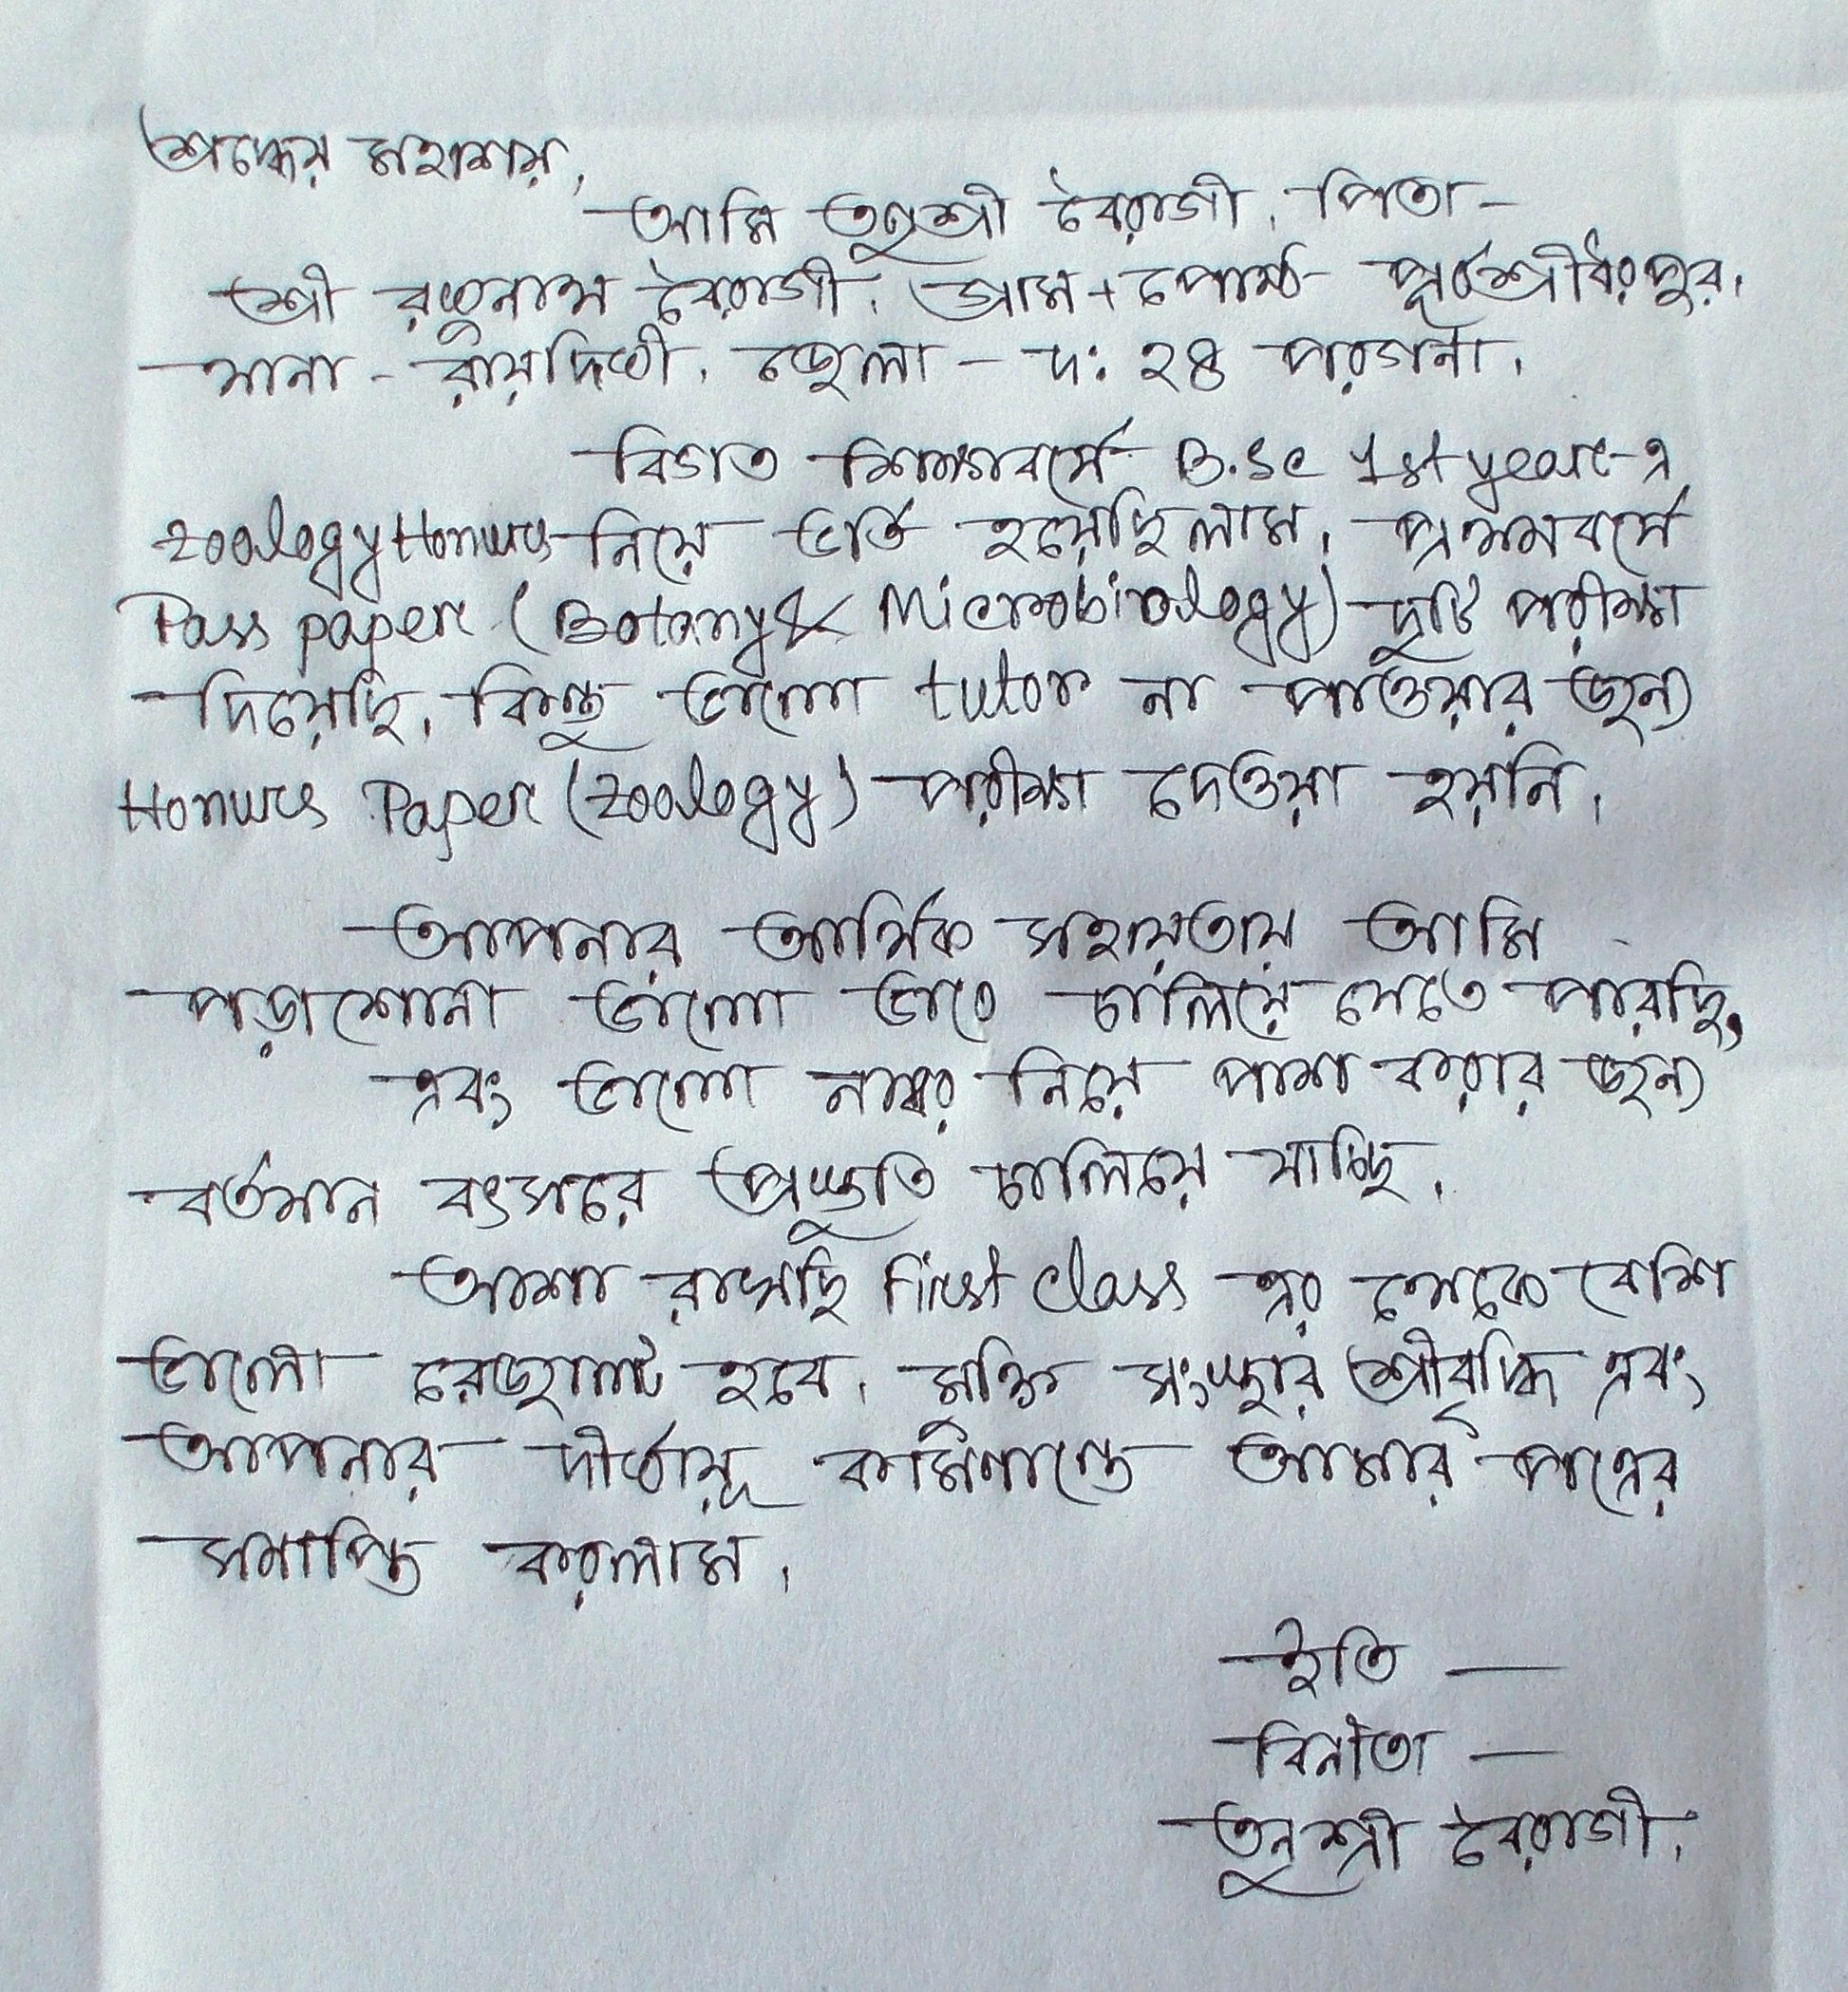 শ্রদ্ধেয় মহাশয়,
আমি তনুশ্রী বৈরাগী, পিতা -
শ্রী রঘুনাথ বৈরাগী, গ্রাম + পোষ্ট - পূর্বশ্রীধরপুর,
থানা - রায়দিঘী, জেলা - দ: ২৪ পরগনা।
বিগত শিক্ষাবর্ষে B.Sc 1st year-এ
Zoology Honurs নিয়ে ভর্তি হয়েছিলাম। প্রথমবর্ষে
Pass paper (Botany & Microbiology) দুটি পরীক্ষা
দিয়েছি, কিন্তু ভালো tutor না পাওয়ার জন্য
Honurs Paper (Zoology) পরীক্ষা দেওয়া হয়নি।
আপনার আর্থিক সহায়তায় আমি
পড়াশোনা ভালো ভাবে চালিয়ে যেতে পারছি,
এবং ভালো নাম্বার নিয়ে পাশ করার জন্য
বর্তমান বৎসরে প্রস্তুতি চালিয়ে যাচ্ছি।
আশা রাখছি First class এর থেকে বেশি
ভালো রেজাল্ট হবে। মুক্তি সংস্থার শ্রীবৃদ্ধি এবং
আপনার দীর্ঘায়ু কামিনান্তে আমার পত্রের
সমাপ্তি করলাম।
ইতি —
বিনীতা —
তনুশ্রী বৈরাগী।